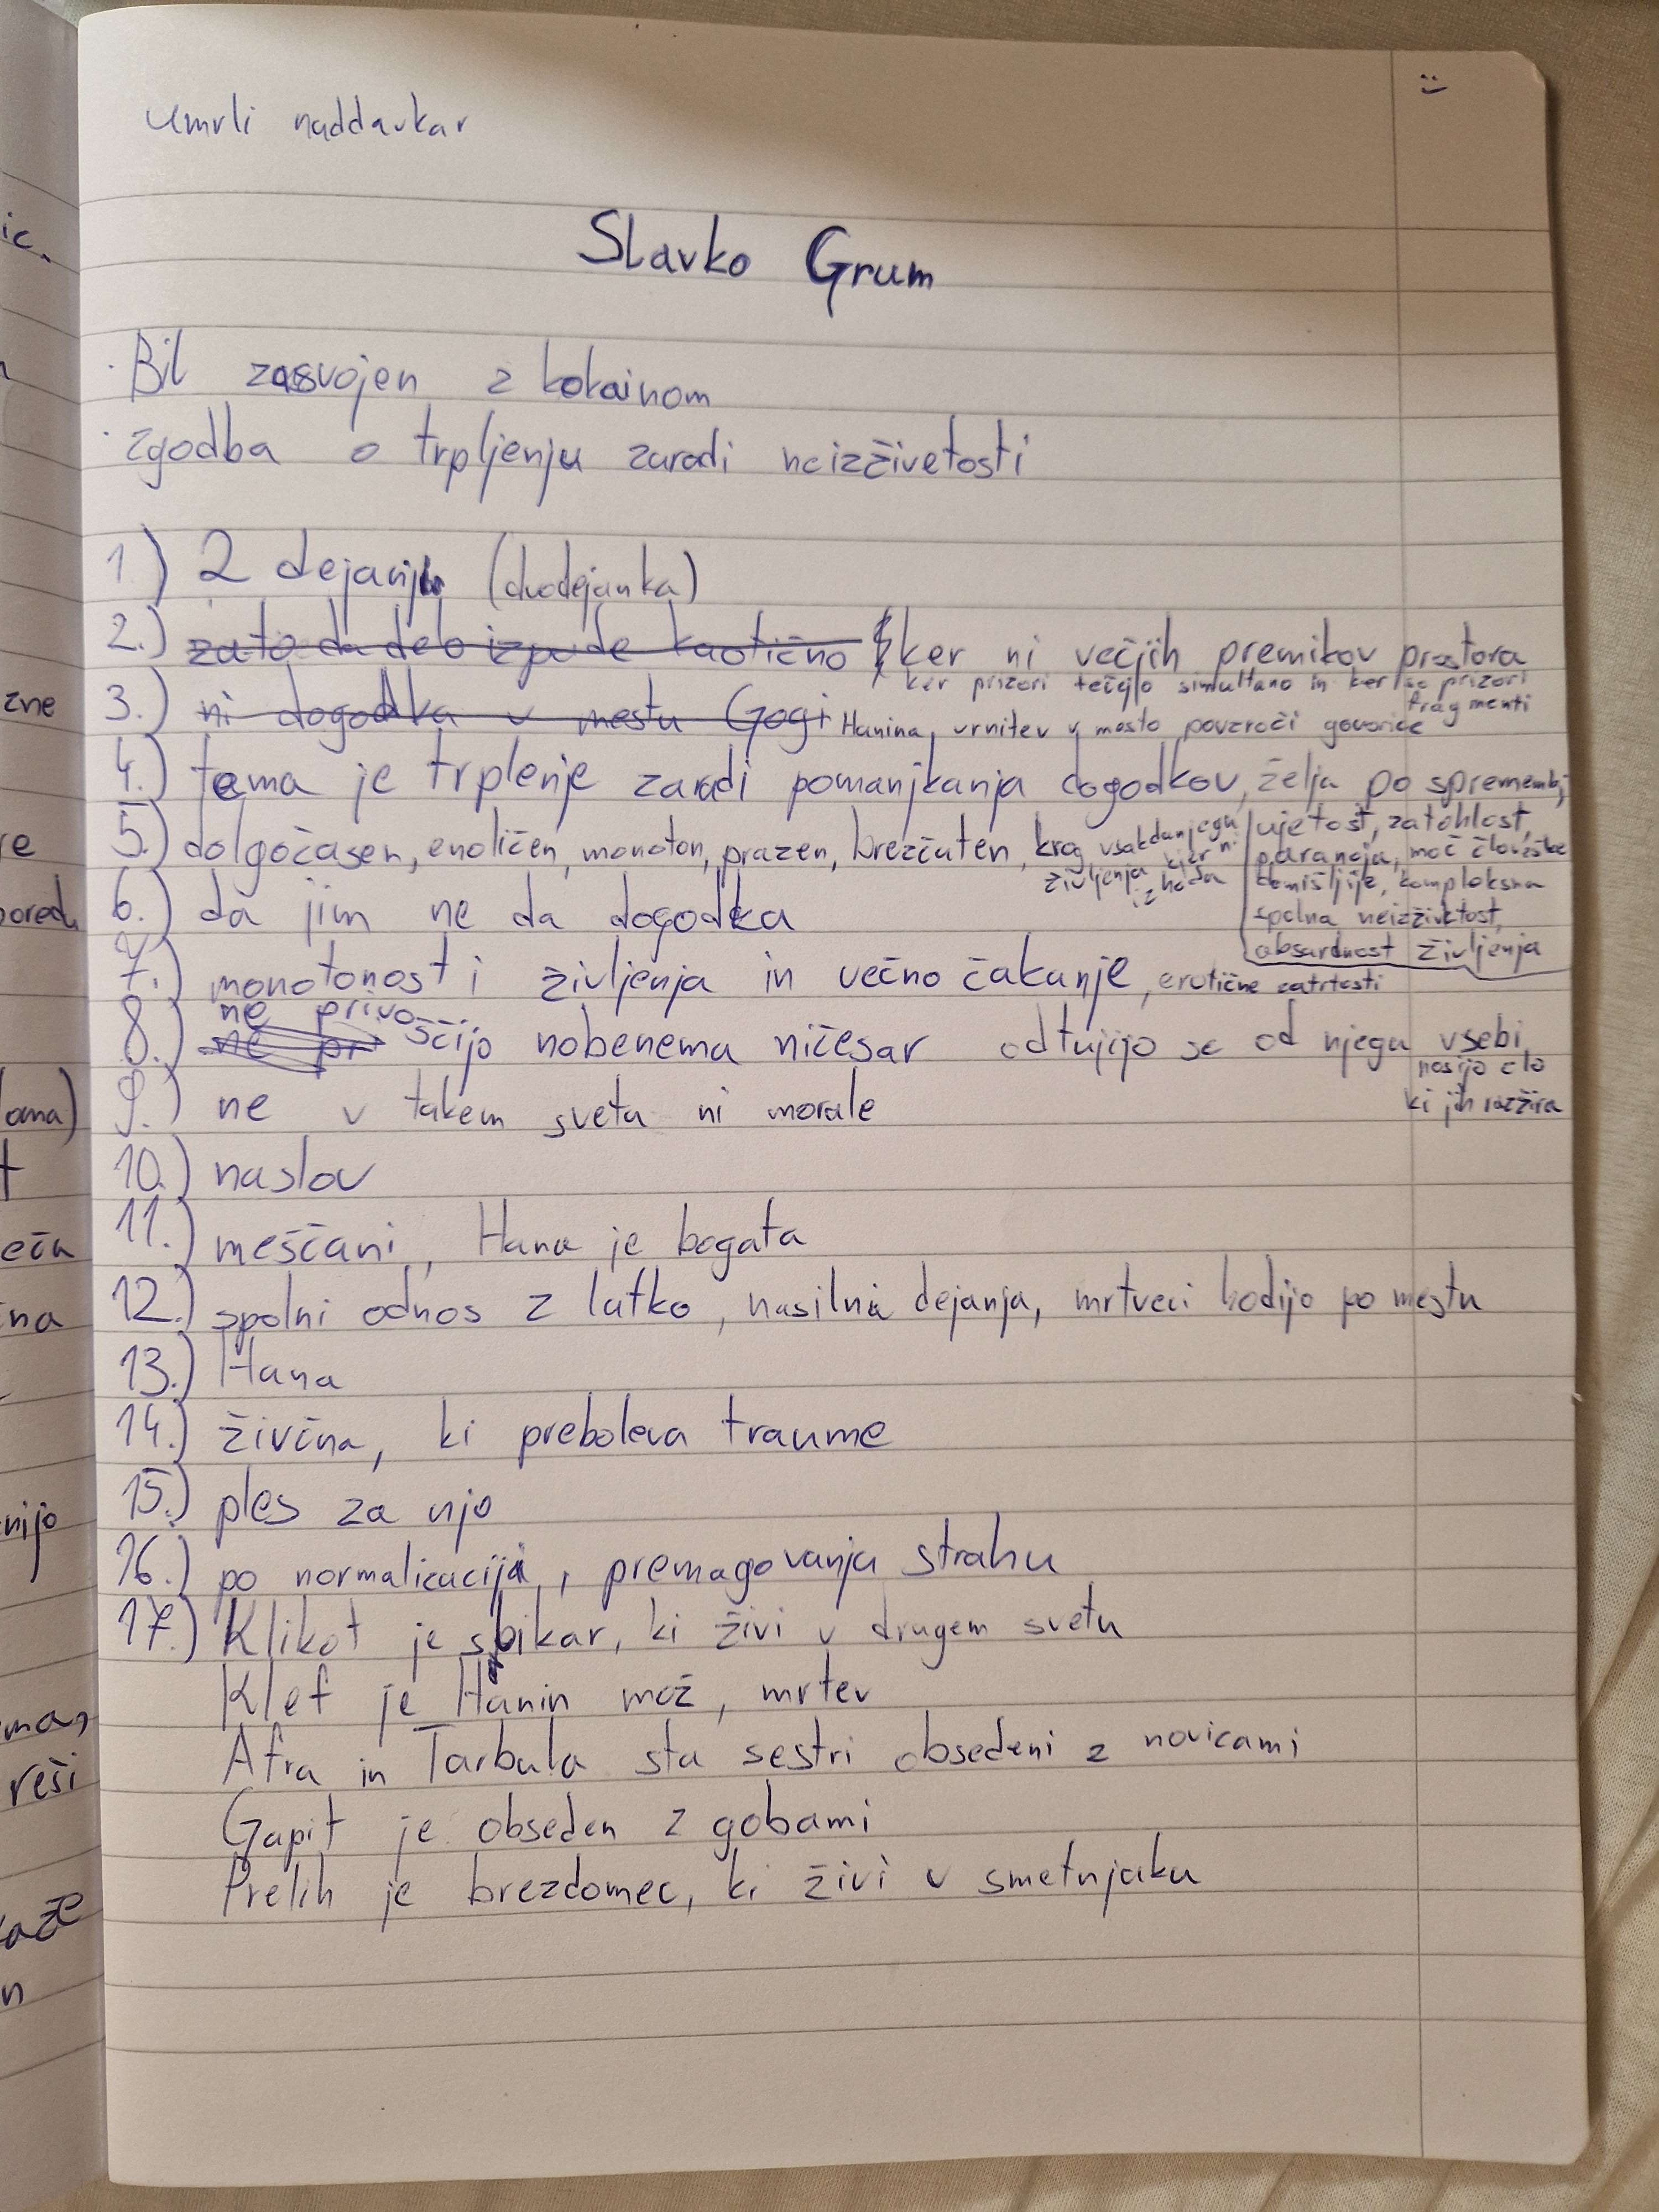 umrli naddavkar
Slavko Grum
· Bil zasvojen z kokainom
· zgodba o trpljenju zaradi neizživetosti
1) 2 dejanji (dvodejanka)
2.) zato da delo izpade kaotično ker ni večjih premikov prostora
ker prizori tečejo simultano in ker so prizori
fragmenti
3.) ni dogodka v mestu Gogi Hanina vrnitev v mesto povzroči govorice
4.) tema je trplenje zaradi pomanjkanja dogodkov, želja po spremembi,
5.) dolgočasen, enoličen, monoton, prazen, brezčuten, krog vsakdanjega
življenja kjer ni
izhoda
ujetost, zatohlost,
paranoja, moč človeške
domišljije, kompleksna
spolna neizživetost,
absardnost življenja
6.) da jim ne da dogodka
7.) monotonosti življenja in večno čakanje, erotične zatrtosti
8.) ne privoščijo nobenema ničesar odtujijo se od njega v sebi
nosijo zlo
ki jih razžira
9.) ne v takem svetu ni morale
10.) naslov
11.) meščani, Hana je bogata
12.) spolni odnos z lutko, nasilna dejanja, mrtveci hodijo po mestu
13.) Hana
14.) živčna, ki preboleva traume
15.) ples za njo
16.) po normalizaciji, premagovanja strahu
17.) Klikot je slikar, ki živi v drugem svetu
Klef je Hanin mož, mrtev
Afra in Tarbula sta sestri obsedeni z novicami
Gapit je obseden z gobami
Prelih je brezdomec, ki živi v smetnjaku
ic.
zne
re
poredu
oma)
t
eča
ina
nijo
ma,
reši
kaže
n